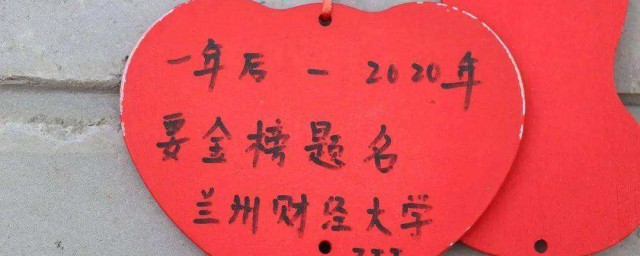 一年后 - 2020年
要金榜题名
兰州财经大学